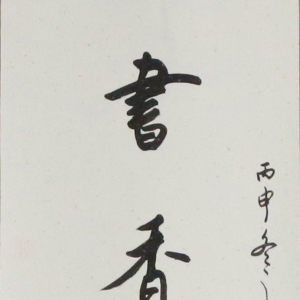 書香
丙申冬